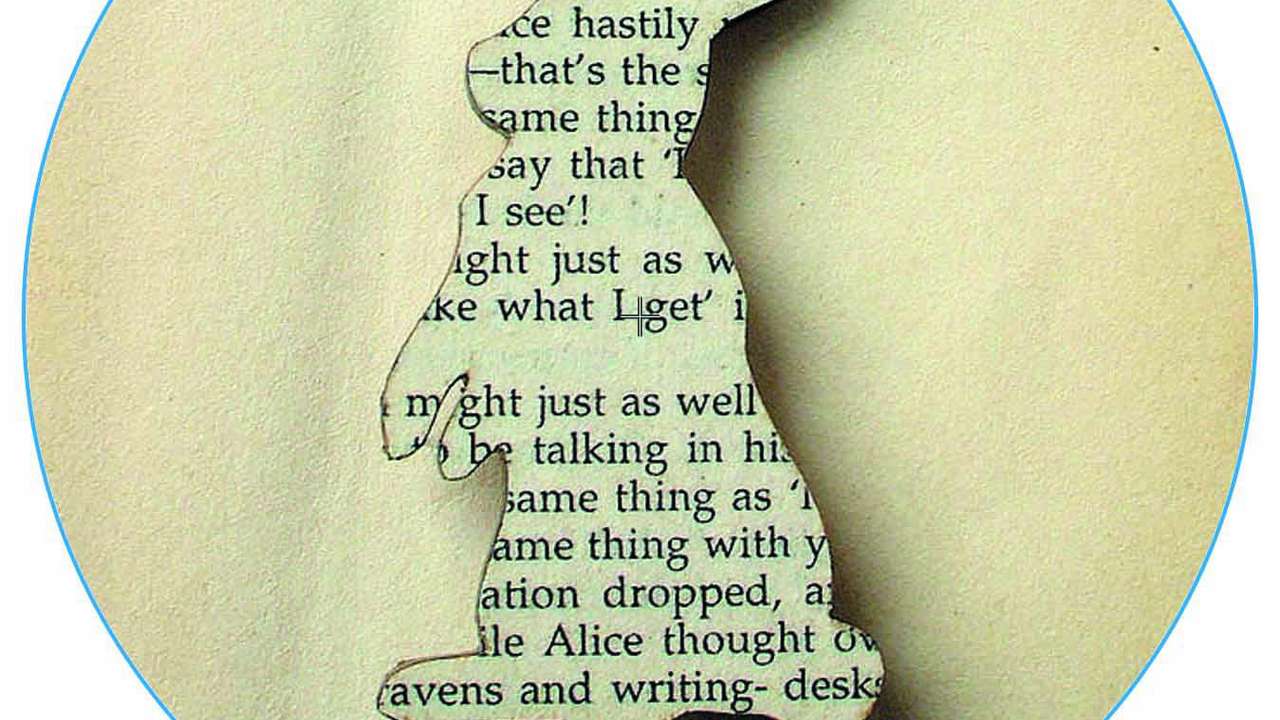 hastily
—that's the
same thing
say that 'I
I see'!
just as
what I get'
might just as well
to be talking in his
same thing as 'I
same thing with
dropped,
Alice thought
ravens and writing- desks